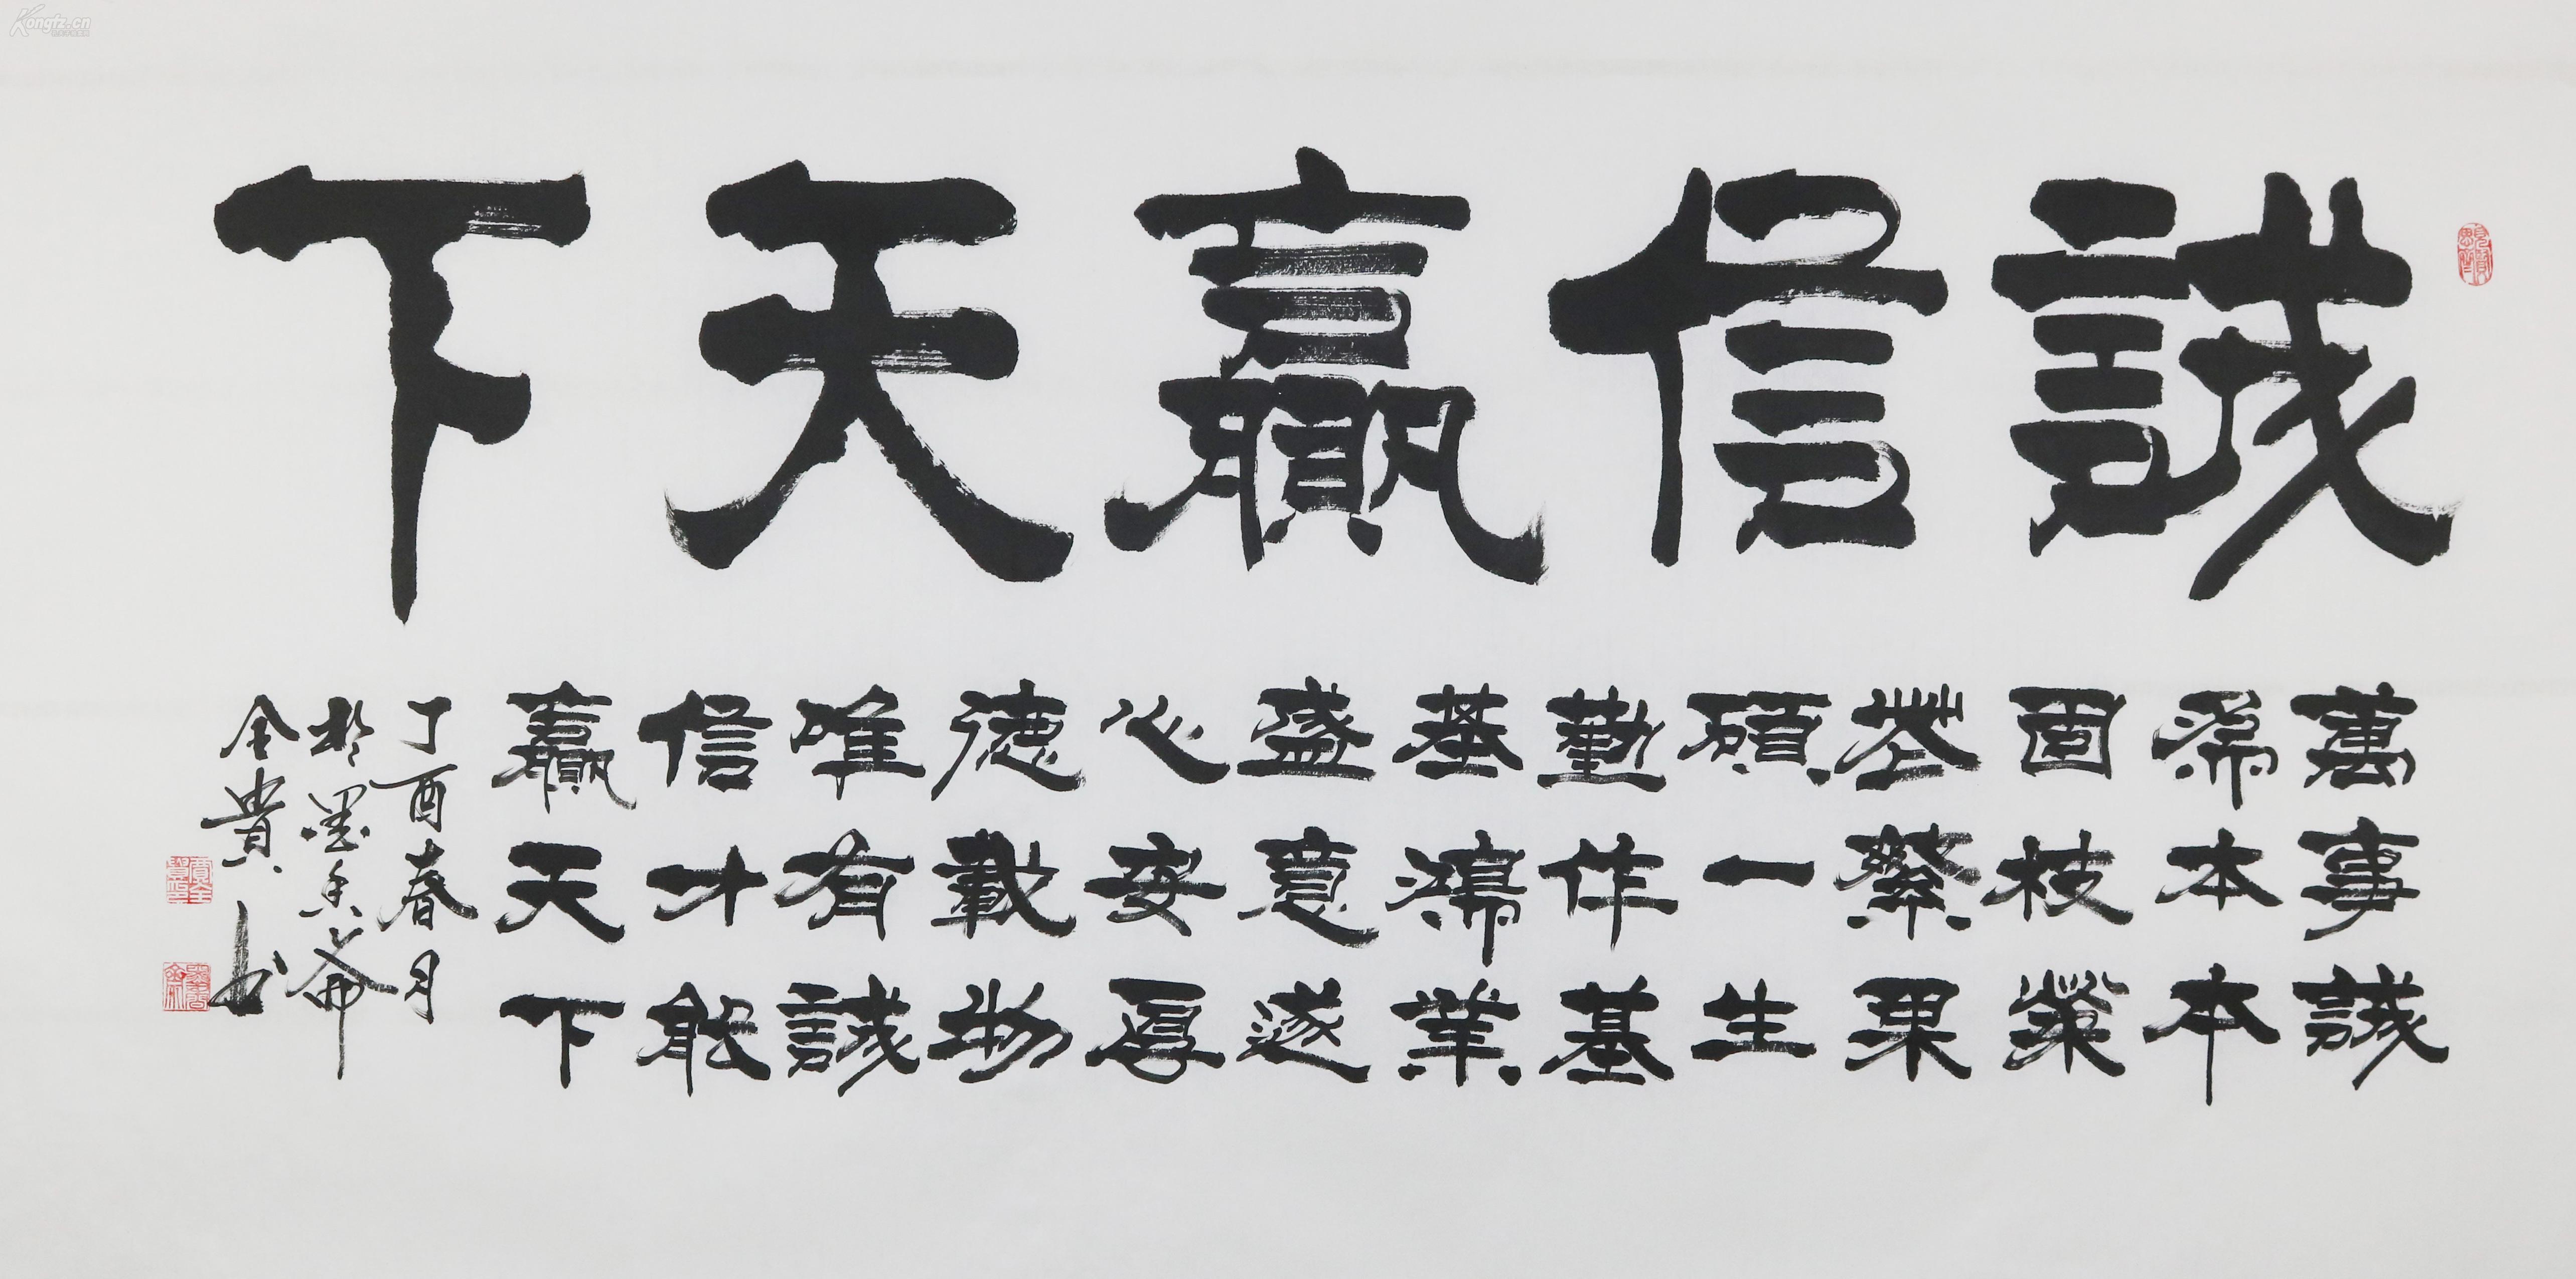 誠信贏天下
萬事誠
為本本
固枝榮
花繁果
碩一生
勤作基
基鴻業
盛意遂
心安厚
德載物
唯有誠
信才能
贏天下
丁酉春月
於墨香齋
全貴書
Kongfz.cn